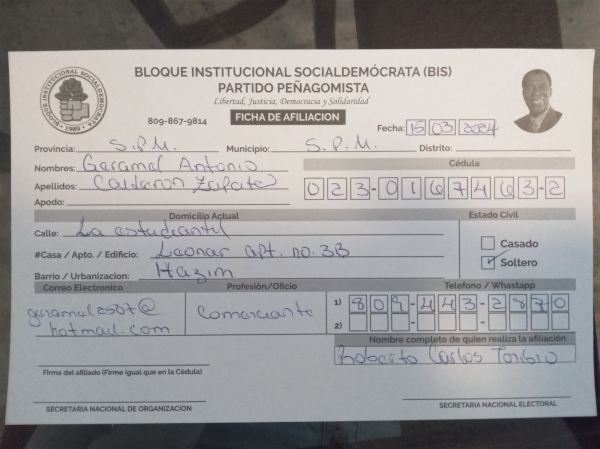 BLOQUE INSTITUCIONAL SOCIALDEMÓCRATA (BIS)
PARTIDO PEÑAGOMISTA
Libertad, Justicia, Democracia y Solidaridad
BLOQUE INSTITUCIONAL SOCIALDEMOCRATA
1989
809-867-9814
FICHA DE AFILIACION
Fecha: 15 03 2024
Provincia: S.P.M. Municipio: S.P.M. Distrito:
Nombres: Garamal Antonio
Cédula
Apellidos: Calderon Zapate
023-0167463-2
Apodo:
Domicilio Actual Estado Civil
Calle: La estudiantil
Casado
#Casa / Apto. / Edificio: Leonar apt. no. 3B
Soltero
Barrio / Urbanizacion: Hazim
Correo Electronico Profesión/Oficio Telefono / Whastapp
garamal2507@ Comerciante 1) 809-443-2870
hotmail.com 2)
Nombre completo de quien realiza la afiliación
Roberto Carlos Toribio
Firma del afiliado (Firme igual que en la Cédula)
SECRETARIA NACIONAL DE ORGANIZACION SECRETARIA NACIONAL ELECTORAL